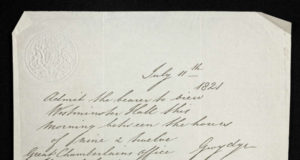 July 11th
1821
Admit the bearer to view
Westminster Hall this
morning between the hours
of nine & twelve
Great Chamberlains office Gwydyr